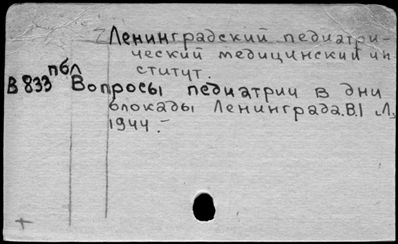 Ленинградский педиатри-
ческий медицинский ин
ститут.
пбл
В833 Вопросы педиатрии в дни
блокады Ленинграда.В.I Л,
1944.-